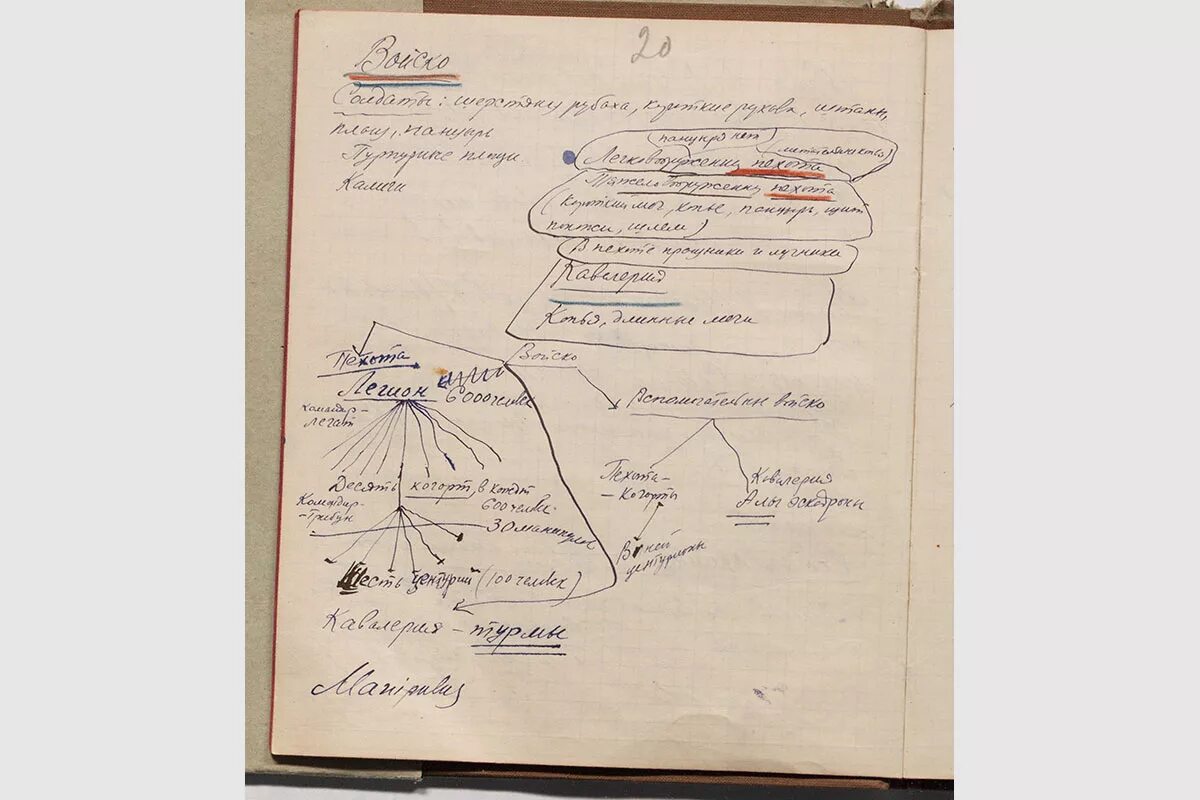 20
Войско
Солдаты: шерстяну рубаха, короткие рукава, штаны,
плащ, панцырь
Пурпурные плащи.
Калиги
(панцыря нет)
(метательные копья)
Легковооруженну пехота
Тяжеловооруженну пехота
(короткий меч, копье, панцырь, щит
поножи, шлем)
В пехоте пращники и лучники
Кавалерия
Копья, длинные мечи
Войско
Пехота
Легион 6000 человек
Командир-
легат
Вспомогательные войско
Десять когорт, в каждой
600 человек.
Командир-
-трибун
30 манипулов
Шесть центурий (100 человек)
Пехота-
-Когорты
В ней
центурионы
Кавалерия
Алы эскадроны
Кавалерия – турмы